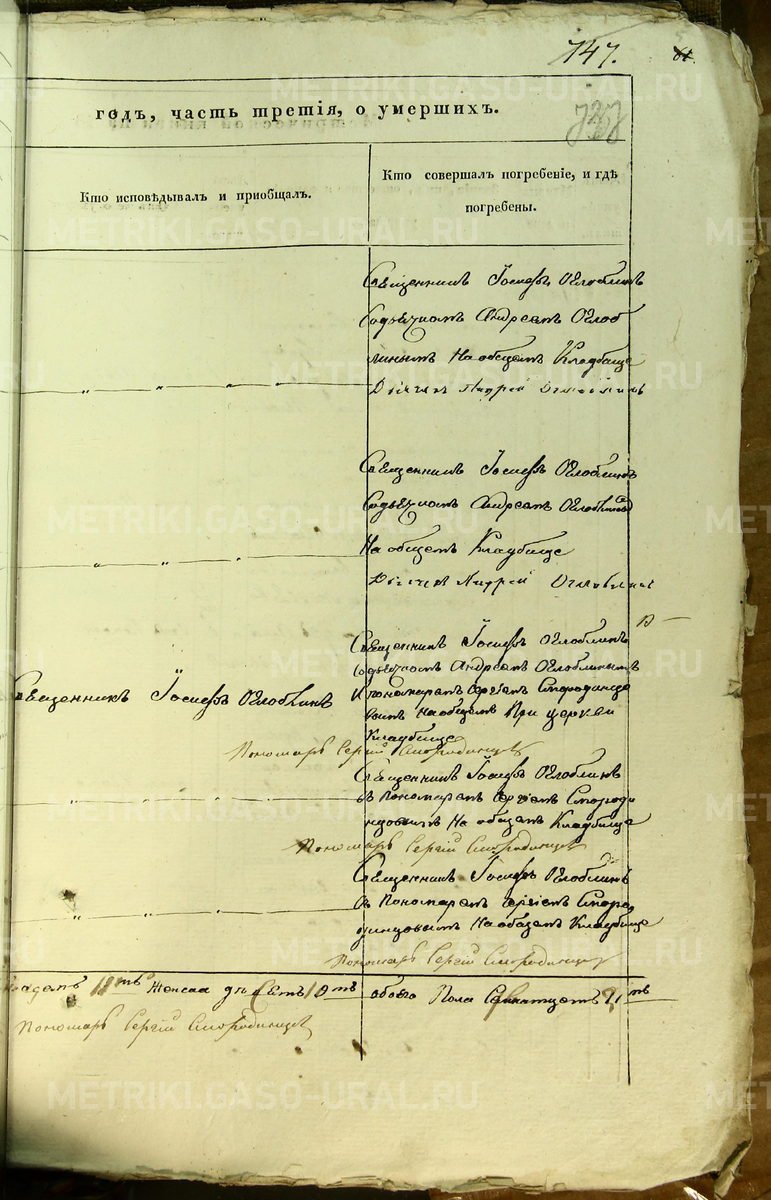 747.
годъ, часть третія, о умершихъ.
Кто исповѣдывалъ и приобщалъ.
Кто совершалъ погребеніе, и гдѣ
погребены.
Священникъ Іосифъ Оглоблинъ
Содьячкомъ Андреемъ Оглоб
линымъ На общемъ Кладбище
Дьячекъ Андрей Оглоблинъ
Священникъ Іосифъ Оглоблинъ
Содьячкомъ Андреемъ
На общемъ Кладбище
Дьячекъ Андрей Оглоблинъ
Священникъ Іосифъ Оглоблинъ
Содьячкомъ Андреемъ Оглоблинымъ
Священникъ Іосифъ Оглоблинъ
И пономаремъ Сергіемъ Смородинце
вымъ На общемъ При церкви
Кладбище
Пономарь Сергій Смородинцевъ
Священникъ Іосифъ Оглоблинъ
съ пономаремъ Сергіемъ Смороди
нцовымъ На общемъ Кладбище
Пономарь Сергій Смородинцевъ
Священникъ Іосифъ Оглоблинъ
Съ Пономаремъ Сергіемъ Сморо
динцовымъ На общемъ Кладбище
Пономарь Сергій Смородинцевъ
обоего Пола
Пономарь Сергій Смородинцевъ
METRIKI.GASO-URAL.RU